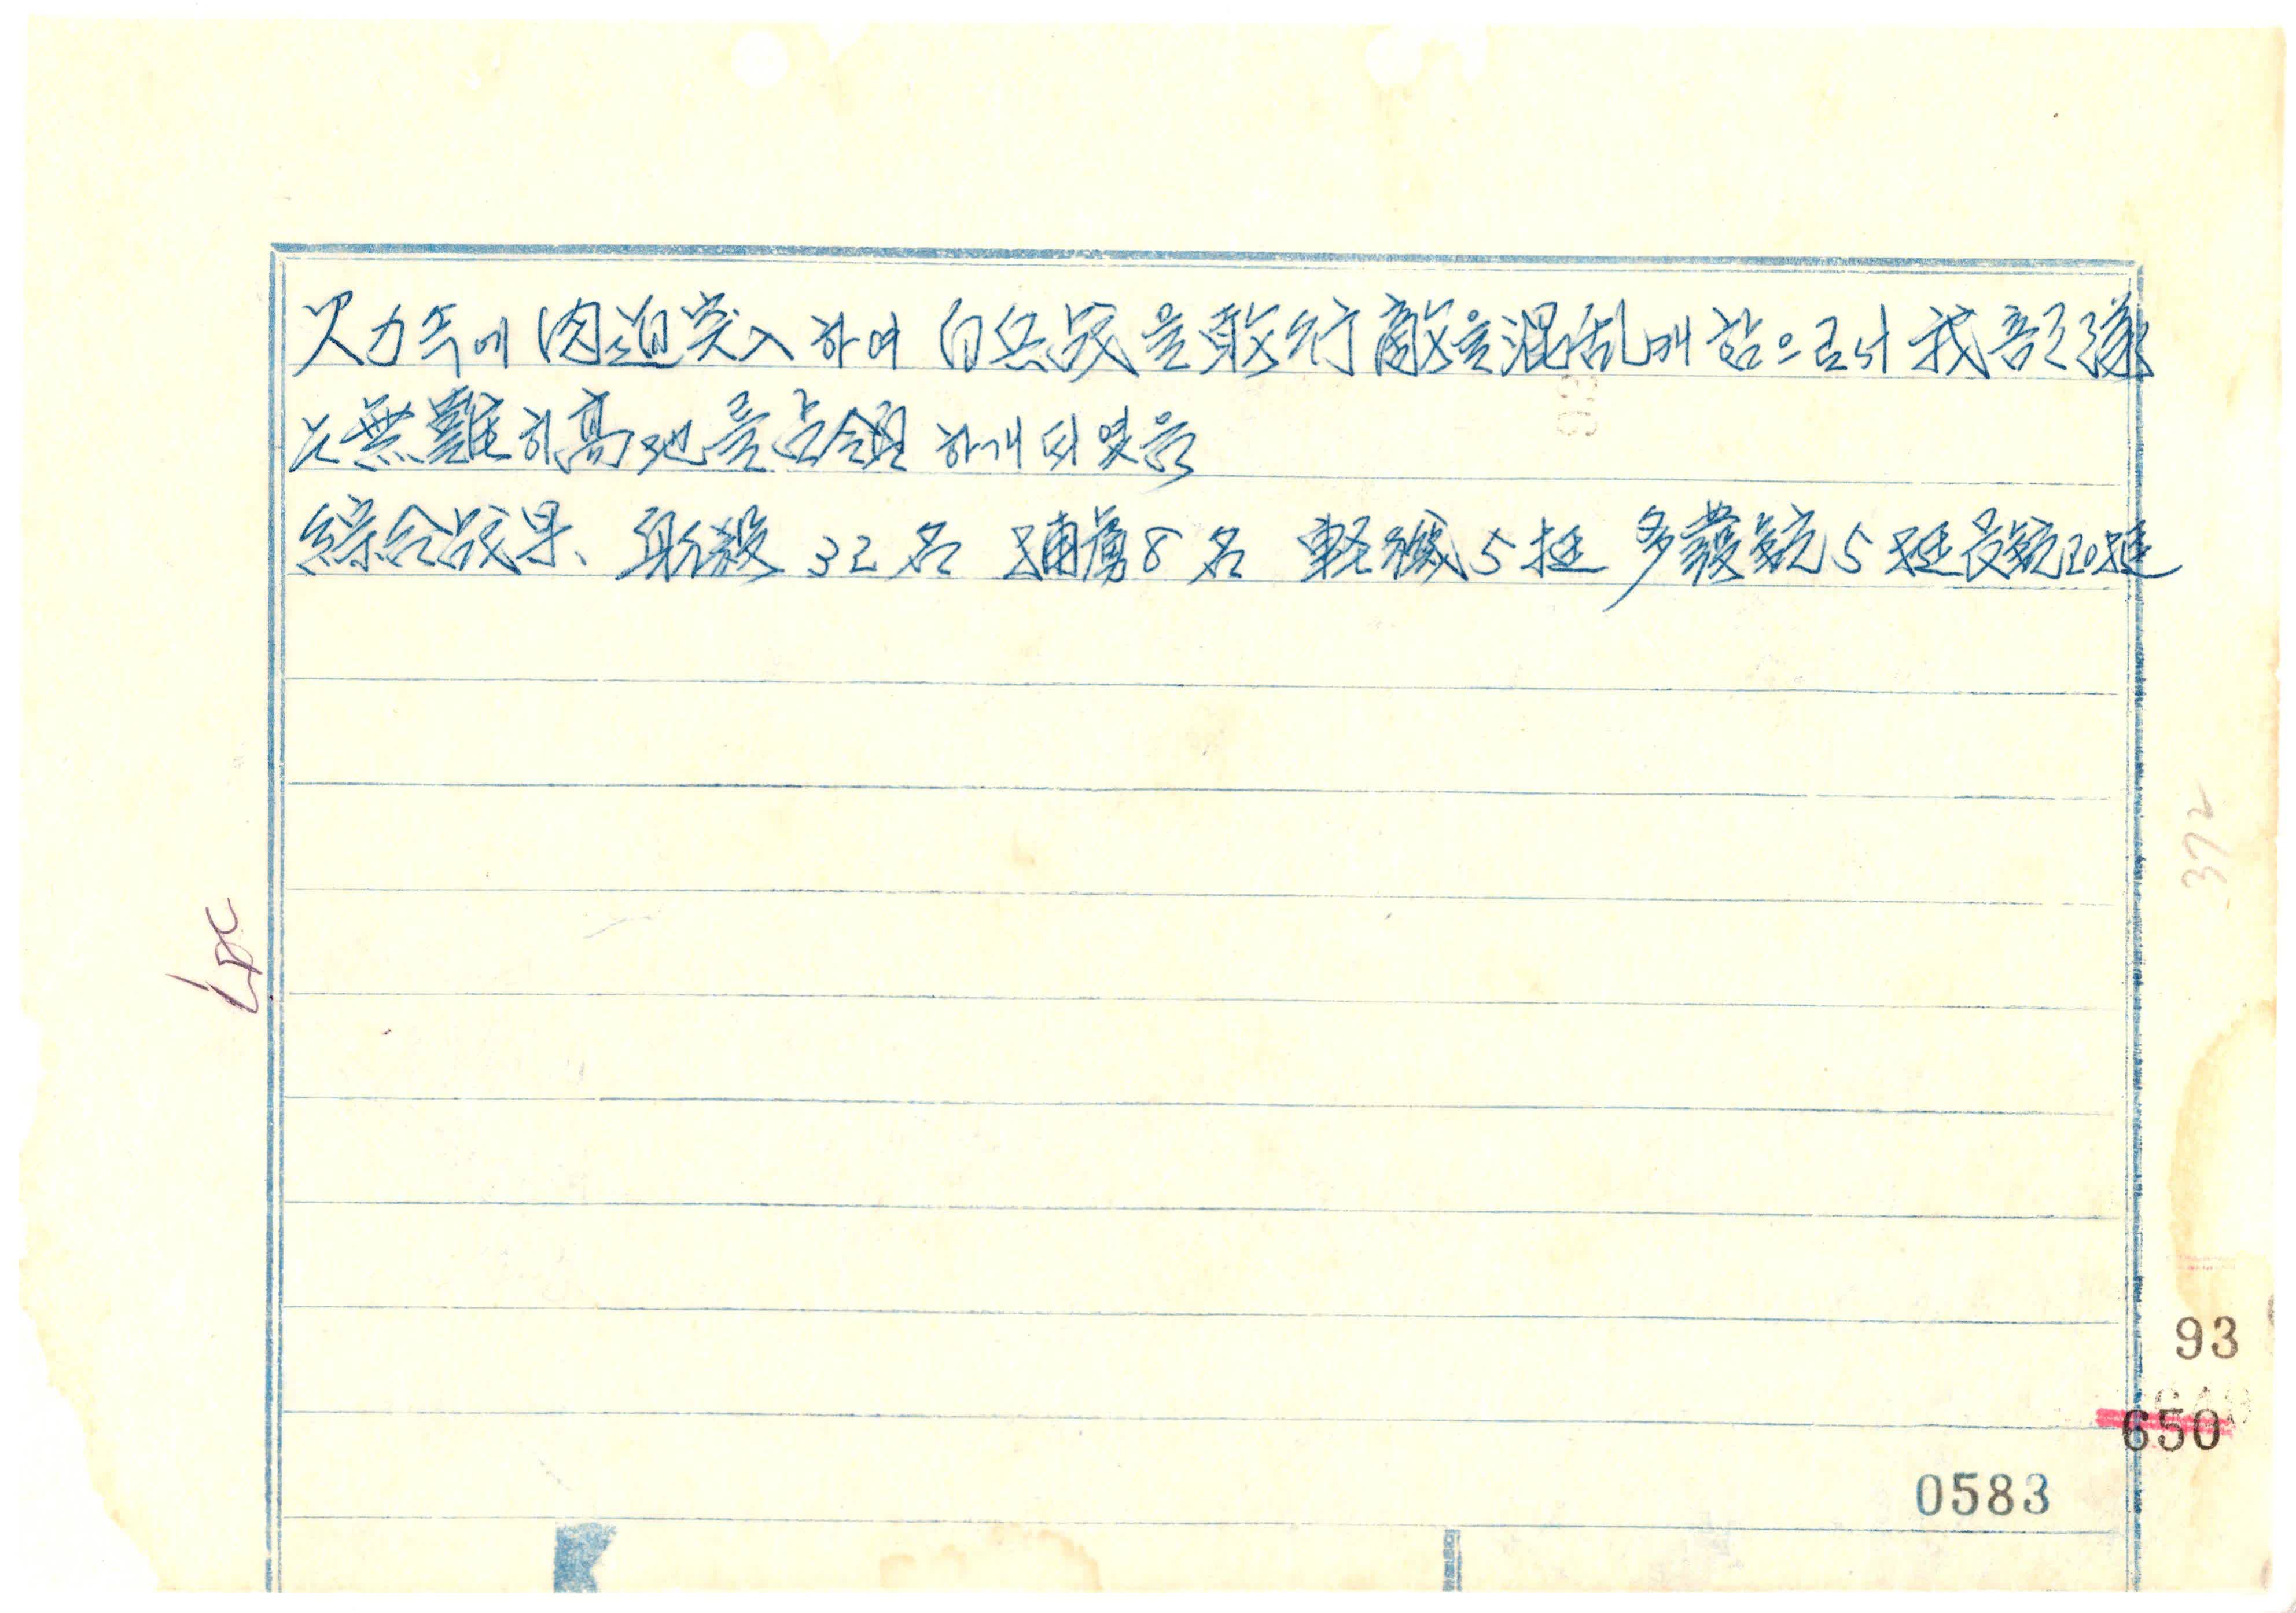 火力속에 肉迫突入 하여 白兵战을敢行 敵을混乱케 함으로서 我部隊
는無難히高地를占領 하게되였음
綜合战果、射殺 32名 捕虜8名 軽機5挺 多發銃5挺長銃20挺
372
93
650
0583